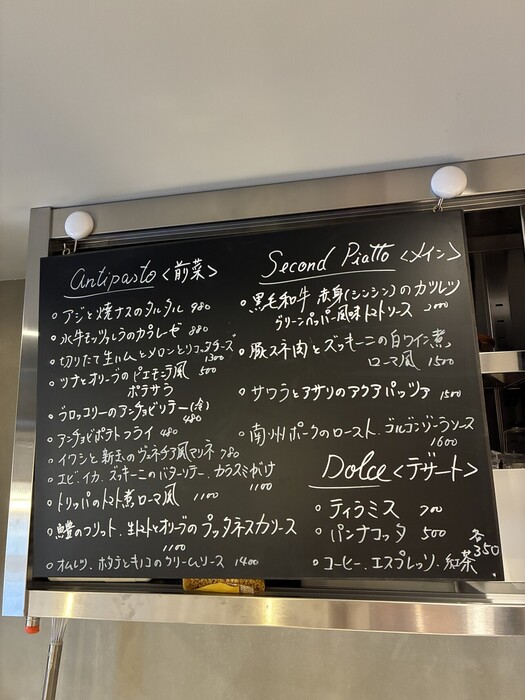 Antipasto <前菜>
アジと焼ナスのタルタル 980
水牛モッツァレラのカプレーゼ 880
切りたて生ハムとメロンとリコッタチーズ
1300
ツナとオリーブのピエモンテ風 500
ポテサラ
ブロッコリーのアンチョビソテー(冷)
480
アンチョビポテトフライ 480
イワシと新玉のヴェネチア風マリネ 780
エビ、イカ、ズッキーニのバターソテー、カラスミがけ
1100
トリッパのトマト煮ローマ風 1100
鱧のフリット、生トマトとオリーブのプッタネスカソース
1100
オムレツ、ホタテとキノコのクリームソース 1400
Second Piatto <メイン>
黒毛和牛 赤身(シンシン)のカツレツ
グリーンペッパー風味トマトソース 2000
豚スネ肉とズッキーニの白ワイン煮
ローマ風 1500
サワラとアサリのアクアパッツァ 1500
南州ポークのロースト、ゴルゴンゾーラソース
1600
Dolce <デザート>
ティラミス 700
パンナコッタ 500
コーヒー、エスプレッソ、紅茶 各350